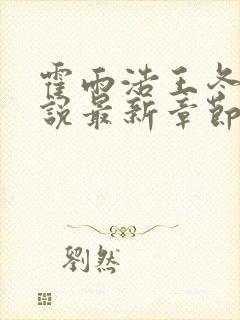 霍雨浩王冬
說最新章節
劉然